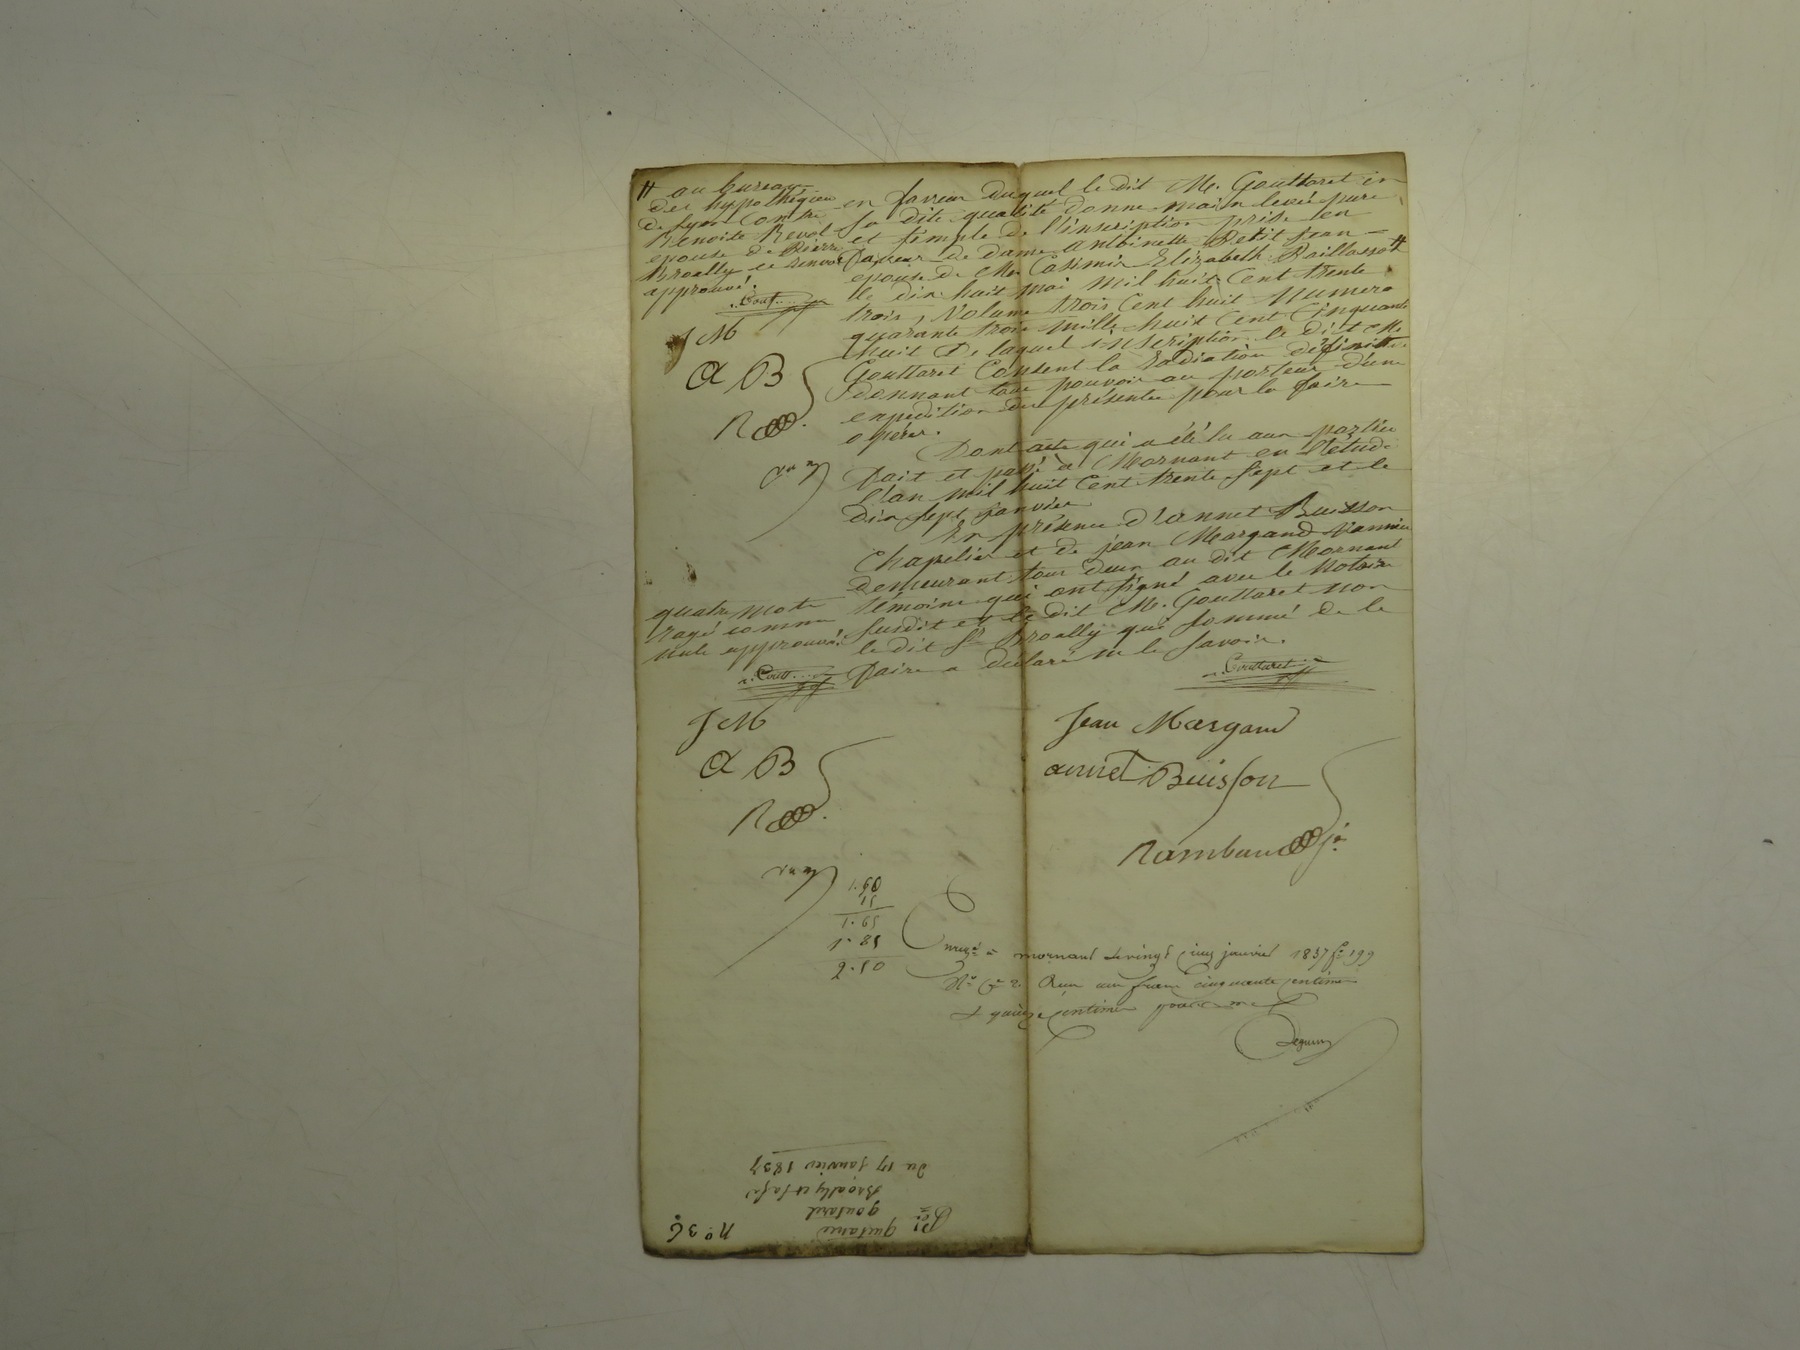 # au bureau
des hypothèques
de Lyon contre
Benoite Revol
epouse de Pierre
Broally ce renvoi
approuvé.
Gout....
J M
A B
R
en faveur duquel le dit Me. Gouttaret en
sa dite qualité donne main levée pure
et simple de l'inscription prise en
faveur de dame Antoinette Petit Jean
epouse de Me Casimir Elizabeth Baillasson #
le dix huit mai mil huit cent trente
trois, volume trois cent huit numero
quarante trois mille huit cent cinquante
huit de laquel inscription le dit Me
Gouttaret consent la radiation définitive
donnant tout pouvoir au porteur d'une
expedition des présentes pour la faire
opérer.
Dont acte qui a été lu aux parties
Fait et passé à Mornant en l'étude
l'an mil huit cent trente sept et le
dix sept janvier
En présence d'annet Buisson
Chapelier et de jean Margand Vannier
demeurant tous deux au dit Mornant
témoins qui ont signé avec le Notaire
susdit et le dit Me. Gouttaret non
le dit Sr Broally qui sommé de le
faire a déclaré ne le savoir.
quatre mots
rayé comme
nuls approuvé.
a. Gout....
J M
A B
R
Gouttaret
Jean Margand
annet Buisson
Rambaud jne
09.1
15
59.1
58.1
05.2
Enregé à mornant le vingt cinq janvier 1837 fo 199
Ro Ce 2. Reçu un franc cinquante centimes
& quinze centimes pour
no. 36
quittance
goutaret
Broally et sa fe
du 17 janvier 1837